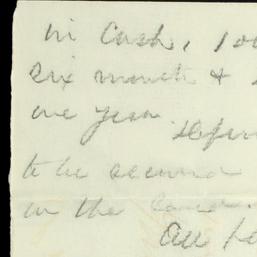 in Cash, 100
six month &
one year
to be secured
in the
All